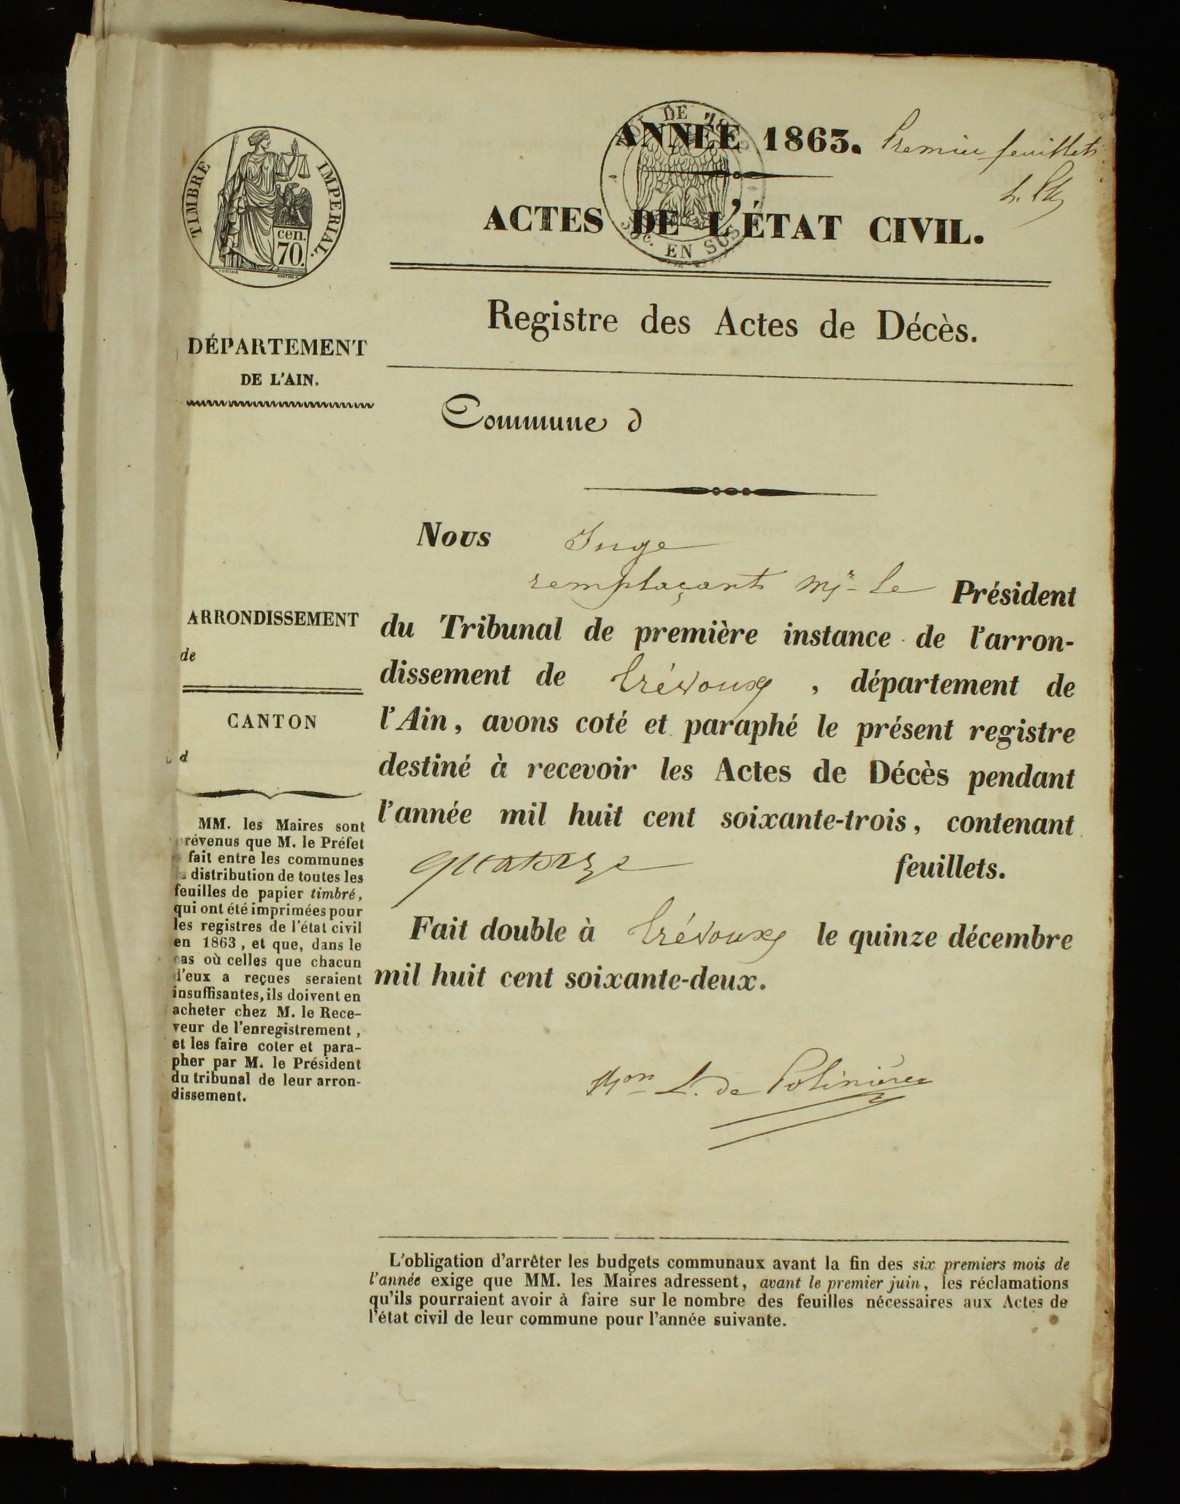 ANNÉE 1863. Premier feuillet
TIMBRE IMPERIAL.
cen.
70.
ACTES DE L'ÉTAT CIVIL.
EN SUS
Registre des Actes de Décès.
DÉPARTEMENT
DE L'AIN.
Commune d
Nous Juge
remplaçant Mr le Président
du Tribunal de première instance de l'arron-
dissement de Trévoux, département de
l'Ain, avons coté et paraphé le présent registre
destiné à recevoir les Actes de Décès pendant
l'année mil huit cent soixante-trois, contenant
quatorze feuillets.
Fait double à Trévoux le quinze décembre
mil huit cent soixante-deux.
ARRONDISSEMENT
de
CANTON
d
MM. les Maires sont
prévenus que M. le Préfet
fait entre les communes
la distribution de toutes les
feuilles de papier timbré,
qui ont été imprimées pour
les registres de l'état civil
en 1863, et que, dans le
cas où celles que chacun
d'eux a reçues seraient
insuffisantes, ils doivent en
acheter chez M. le Rece-
veur de l'enregistrement,
et les faire coter et para-
pher par M. le Président
du tribunal de leur arron-
dissement.
L. de Polinière
L'obligation d'arrêter les budgets communaux avant la fin des six premiers mois de
l'année exige que MM. les Maires adressent, avant le premier juin, les réclamations
qu'ils pourraient avoir à faire sur le nombre des feuilles nécessaires aux Actes de
l'état civil de leur commune pour l'année suivante.